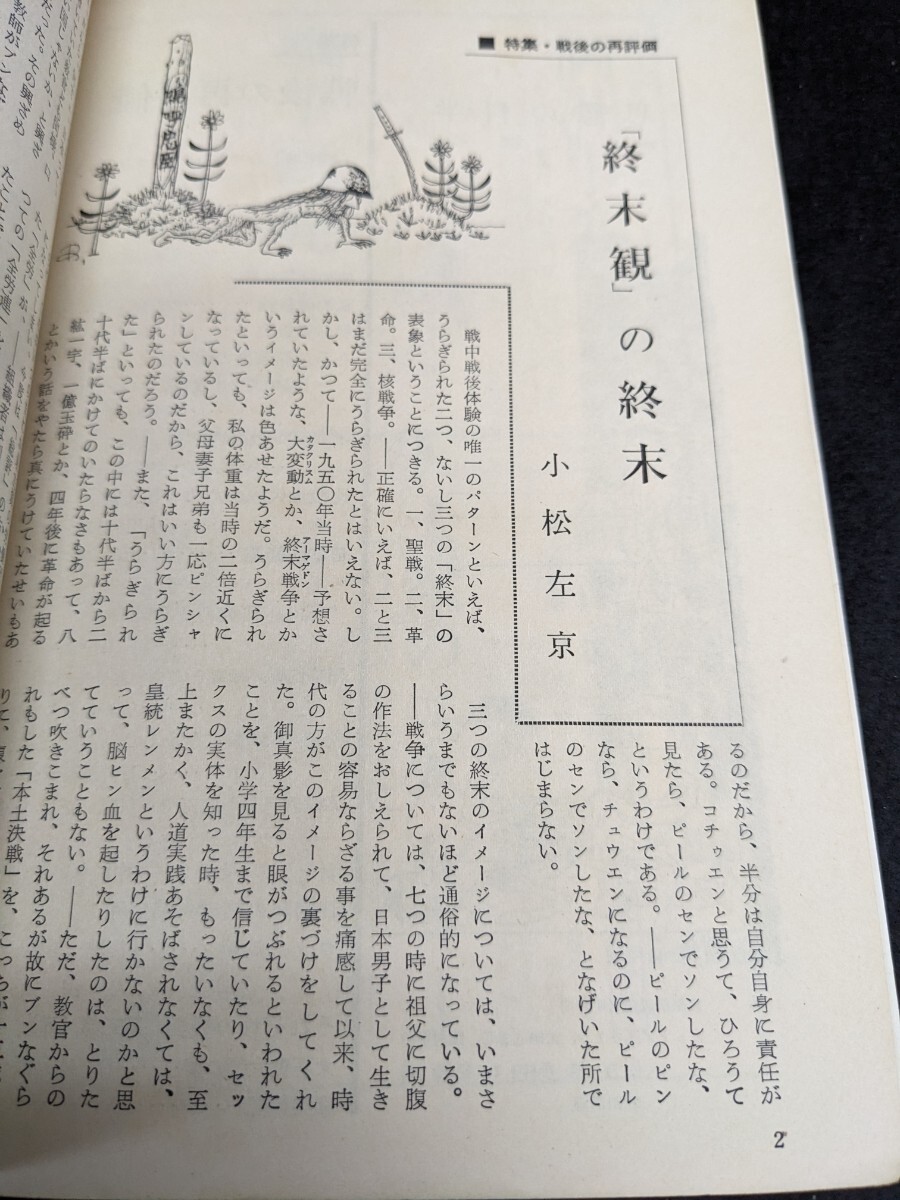 ■ 特集・戦後の再評価
「終末観」の終末
小松左京
戦中戦後体験の唯一のパターンといえば、
うらぎられた二つ、ないし三つの「終末」の
表象ということにつきる。一、聖戦。二、革
命。三、核戦争。――正確にいえば、二と三
はまだ完全にうらぎられたとはいえない。し
かし、かつて――一九五〇年当時――予想さ
れていたような、大変動とか、終末戦争とか
カタクリスム
アーマゲドン
いうイメージは色あせたようだ。うらぎられ
たといっても、私の体重は当時の二倍近くに
なっているし、父母妻子兄弟も一応ピンシャ
ンしているのだから、これはいい方にうらぎ
られたのだろう。――また、「うらぎられ
た」といっても、この中には十代半ばから二
十代半ばにかけてのいたらなさもあって、八
紘一宇、一億玉砕とか、四年後に革命が起る
とかいう話をやたら真にうけていたせいもあ
るのだから、半分は自分自身に責任が
ある。コチゥエンと思うて、ひろうて
見たら、ピールのセンでソンしたな、
というわけである。――ピールのピン
なら、チュウエンになるのに、ピール
のセンでソンしたな、となげいた所で
はじまらない。
三つの終末のイメージについては、いまさ
らいうまでもないほど通俗的になっている。
――戦争については、七つの時に祖父に切腹
の作法をおしえられて、日本男子として生き
ることの容易ならざる事を痛感して以来、時
代の方がこのイメージの裏づけをしてくれ
た。御真影を見ると眼がつぶれるといわれた
ことを、小学四年生まで信じていたり、セッ
クスの実体を知った時、もったいなくも、至
上またかく、人道実践あそばされなくては、
皇統レンメンというわけに行かないのかと思
って、脳ヒン血を起したりしたのは、とりた
てていうこともない。――ただ、教官からの
べつ吹きこまれ、それあるが故にブンなぐら
れもした「本土決戦」を、こっちが
2